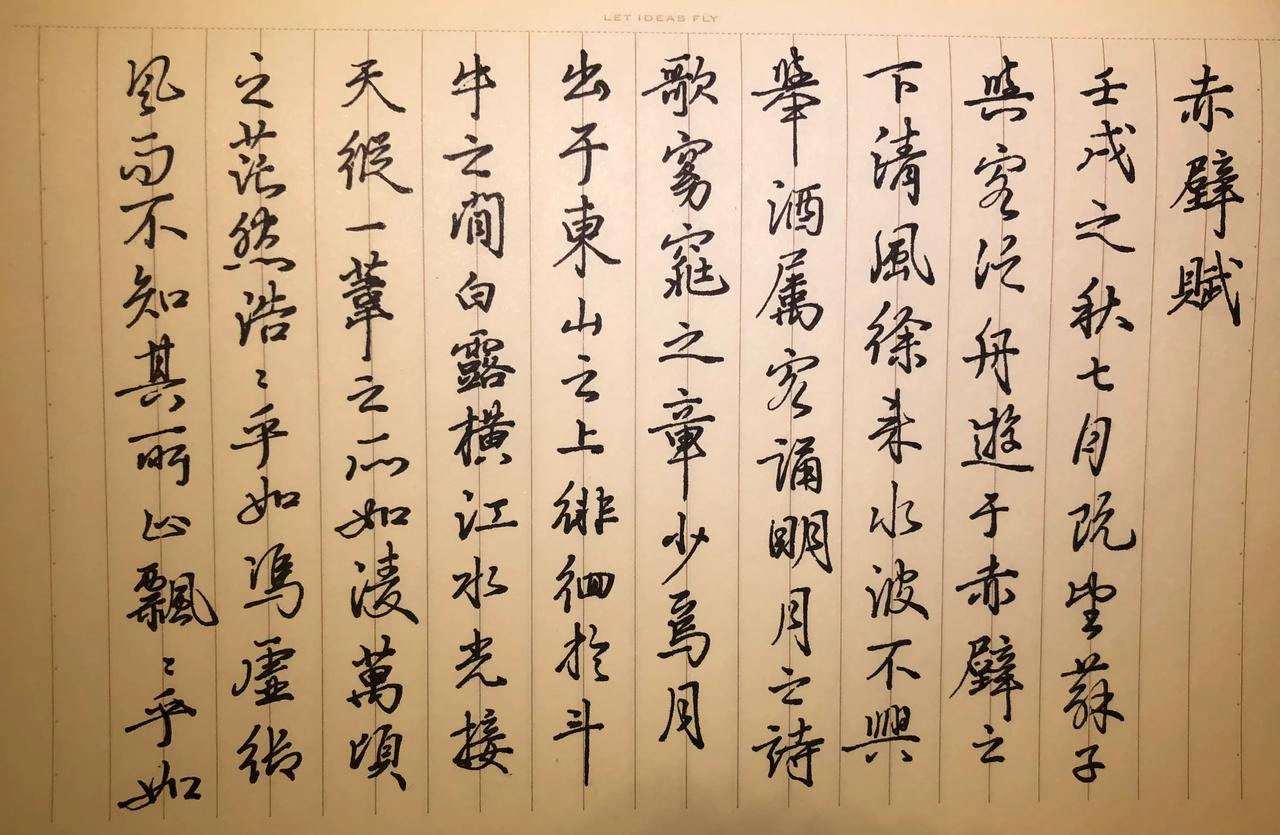 LET IDEAS FLY
赤壁賦
壬戌之秋七月既望蘇子
與客泛舟遊于赤壁之
下清風徐来水波不興
舉酒属客誦明月之詩
歌窈窕之章少焉月
出于東山之上徘徊於斗
牛之間白露横江水光接
天縱一葦之所如淩萬頃
之茫然浩〻乎如馮虚御
風而不知其所止飄〻乎如